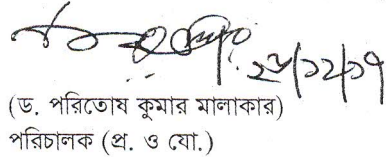 ২৮/১২/১৭
(ড. পরিতোষ কুমার মালাকার)
পরিচালক (প্র. ও যো.)